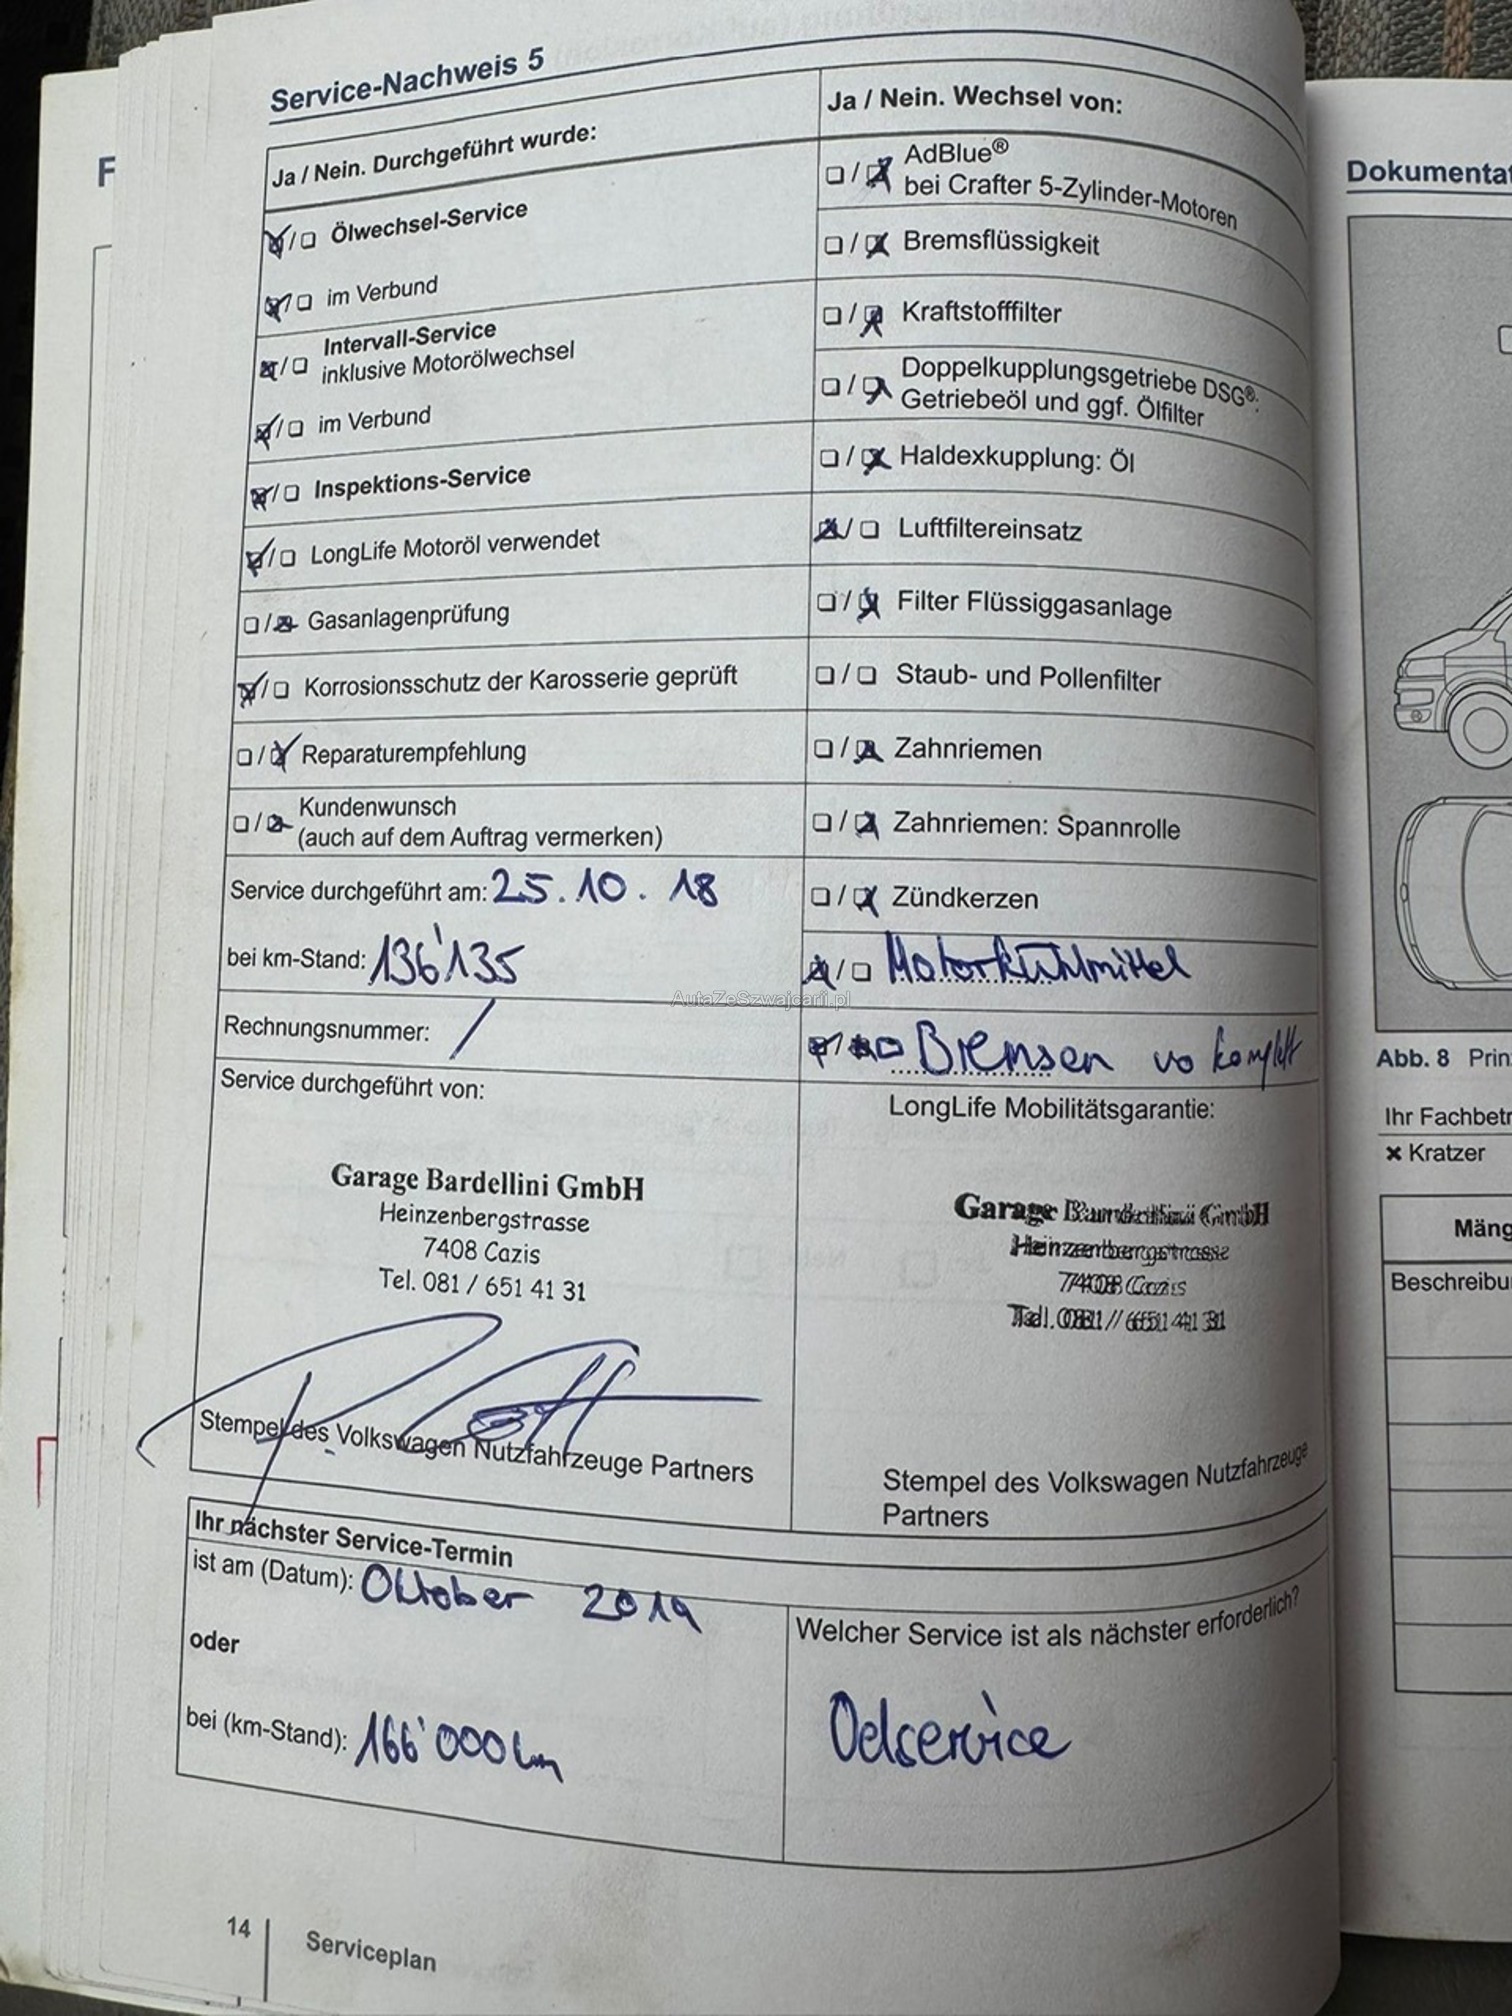 Service-Nachweis 5
Ja / Nein. Durchgeführt wurde:
Ölwechsel-Service
im Verbund
Intervall-Service
inklusive Motorölwechsel
im Verbund
Inspektions-Service
LongLife Motoröl verwendet
Gasanlagenprüfung
Korrosionsschutz der Karosserie geprüft
Reparaturempfehlung
Kundenwunsch
(auch auf dem Auftrag vermerken)
Service durchgeführt am: 25.10.18
bei km-Stand: 136'135
Rechnungsnummer: /
Service durchgeführt von:
Garage Bardellini GmbH
Heinzenbergstrasse
7408 Cazis
Tel. 081 / 651 41 31
Stempel des Volkswagen Nutzfahrzeuge Partners
Ja / Nein. Wechsel von:
AdBlue®
bei Crafter 5-Zylinder-Motoren
Bremsflüssigkeit
Kraftstofffilter
Doppelkupplungsgetriebe DSG®:
Getriebeöl und ggf. Ölfilter
Haldexkupplung: Öl
Luftfiltereinsatz
Filter Flüssiggasanlage
Staub- und Pollenfilter
Zahnriemen
Zahnriemen: Spannrolle
Zündkerzen
Motorkühlmittel
Bremsen vo komplett
LongLife Mobilitätsgarantie:
Garage Bardellini GmbH
Heinzenbergstrasse
7408 Cazis
Tel. 081 / 651 41 31
Stempel des Volkswagen Nutzfahrzeuge
Partners
Ihr nächster Service-Termin
ist am (Datum): Oktober 2019
oder
bei (km-Stand): 166'000 km
Welcher Service ist als nächster erforderlich?
Oelservice
14
Serviceplan
AutaZeSzwajcarii.pl
F
Dokumentat
Abb. 8 Prin
Ihr Fachbetr
× Kratzer
Mäng
Beschreibu